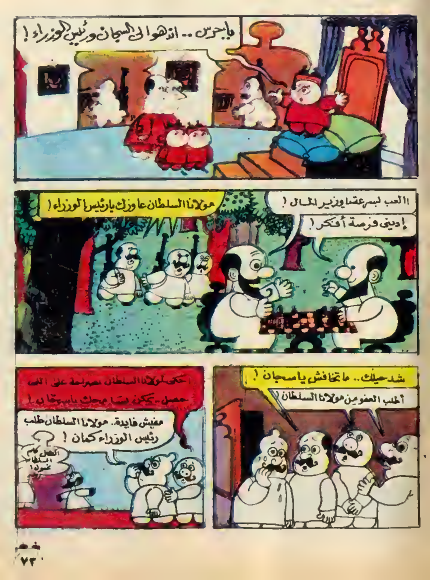 يا حرس .. اندهوا لى السجان ورئيس الوزراء !
العب بسرعة يا وزير المال !
إدينى فرصة أفكر !
مولانا السلطان عاوزك يا رئيس الوزراء !
شد حيلك .. ما تخافش يا سجان !
أطلب العفو من مولانا السلطان
احكى لمولانا السلطان بصراحة على اللى
حصل .. يمكن يسامحك يا سجان !
مفيش فايدة .. مولانا السلطان طلب
رئيس الوزراء كمان !
٧٢